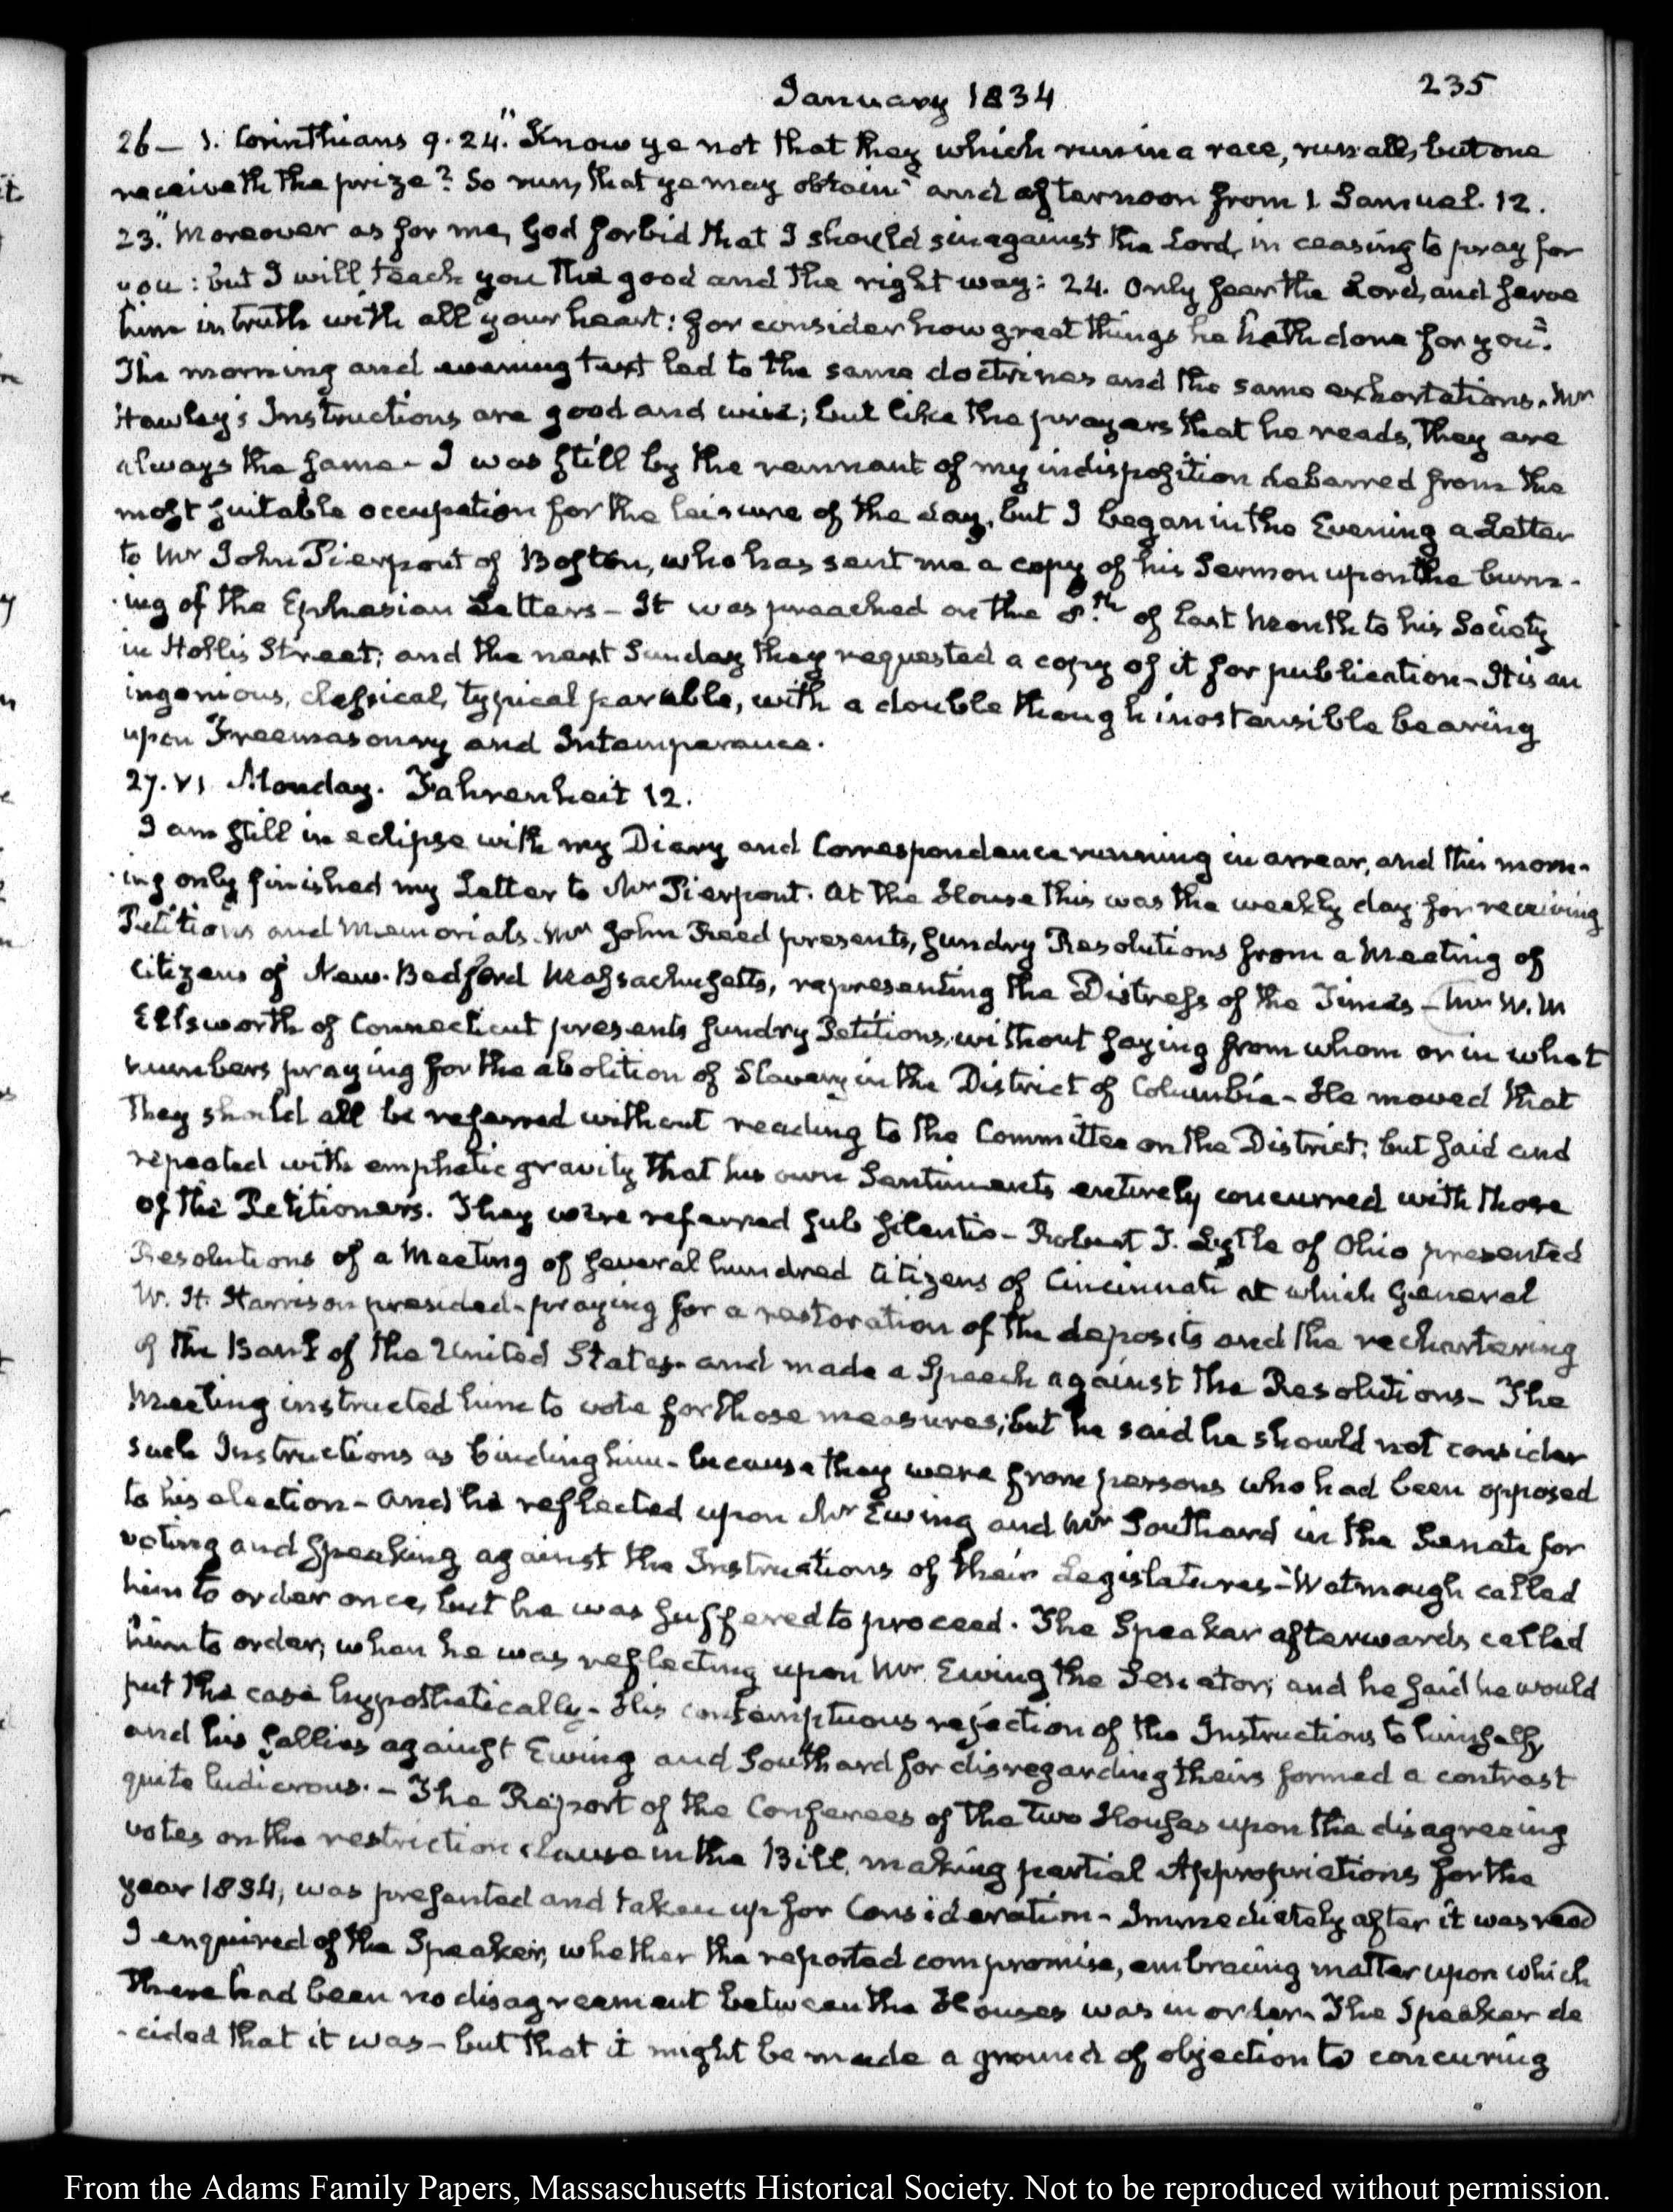 January 1834
235
26— 1. Corinthians 9. 24. "Know ye not that they which run in a race, run all, but one
receiveth the prize? So run, that ye may obtain" and afternoon from 1 Samuel. 12.
23. "Moreover as for me, God forbid that I should sin against the Lord, in ceasing to pray for
you: but I will teach you the good and the right way: 24. Only fear the Lord, and serve
him in truth with all your heart: for consider how great things he hath done for you."
The morning and evening text led to the same doctrines and the same exhortations. Mr
Hawley's Instructions are good and wise; but like the prayers that he reads, they are
always the same— I was still by the remnant of my indisposition debarred from the
most suitable occupation for the leisure of the day, but I began in the Evening a Letter
to Mr John Pierpont of Boston, who has sent me a copy of his Sermon upon the burn-
-ing of the Ephesian Letters— It was preached on the 8th of last Month to his Society
in Hollis Street; and the next Sunday they requested a copy of it for publication— It is an
ingenious, classical, typical parable, with a double though inostensible bearing
upon Freemasonry and Intemperance.
27. VI. Monday. Fahrenheit 12.
I am still in eclipse with my Diary and Correspondence running in arrear, and this morn-
-ing only finished my Letter to Mr Pierpont. At the House this was the weekly day for receiving
Petitions and Memorials. Mr John Reed presents, sundry Resolutions from a Meeting of
Citizens of New-Bedford Massachusetts, representing the Distress of the Times— Mr W. W
Ellsworth of Connecticut presents sundry Petitions, without saying from whom or in what
numbers praying for the abolition of Slavery in the District of Columbia— He moved that
they should all be referred without reading to the Committee on the District; but said and
repeated with emphatic gravity that his own Sentiments entirely concurred with those
of the Petitioners. They were referred sub silentio— Robert T. Lytle of Ohio presented
Resolutions of a Meeting of several hundred Citizens of Cincinnati at which General
W. H. Harrison presided— praying for a restoration of the deposits and the rechartering
of the Bank of the United States— and made a Speech against the Resolutions— The
Meeting instructed him to vote for those measures; but he said he should not consider
such Instructions as binding him— because they were from persons who had been opposed
to his election— And he reflected upon Mr Ewing and Mr Southard in the Senate for
voting and speaking against the Instructions of their Legislatures— Watmough called
him to order once, but he was suffered to proceed. The Speaker afterwards called
him to order, when he was reflecting upon Mr Ewing the Senator; and he said he would
put the case hypothetically— His contemptuous rejection of the Instructions to himself,
and his sallies against Ewing and Southard for disregarding theirs formed a contrast
quite ludicrous.— The Report of the Conferees of the two Houses upon the disagreeing
votes on the restriction clause in the Bill, making partial Appropriations for the
year 1834, was presented and taken up for Consideration— Immediately after it was read
I enquired of the Speaker, whether the reported compromise, embracing matter upon which
there had been no disagreement between the Houses was in order— The Speaker de
-cided that it was— but that it might be made a ground of objection to concuring
From the Adams Family Papers, Massachusetts Historical Society. Not to be reproduced without permission.